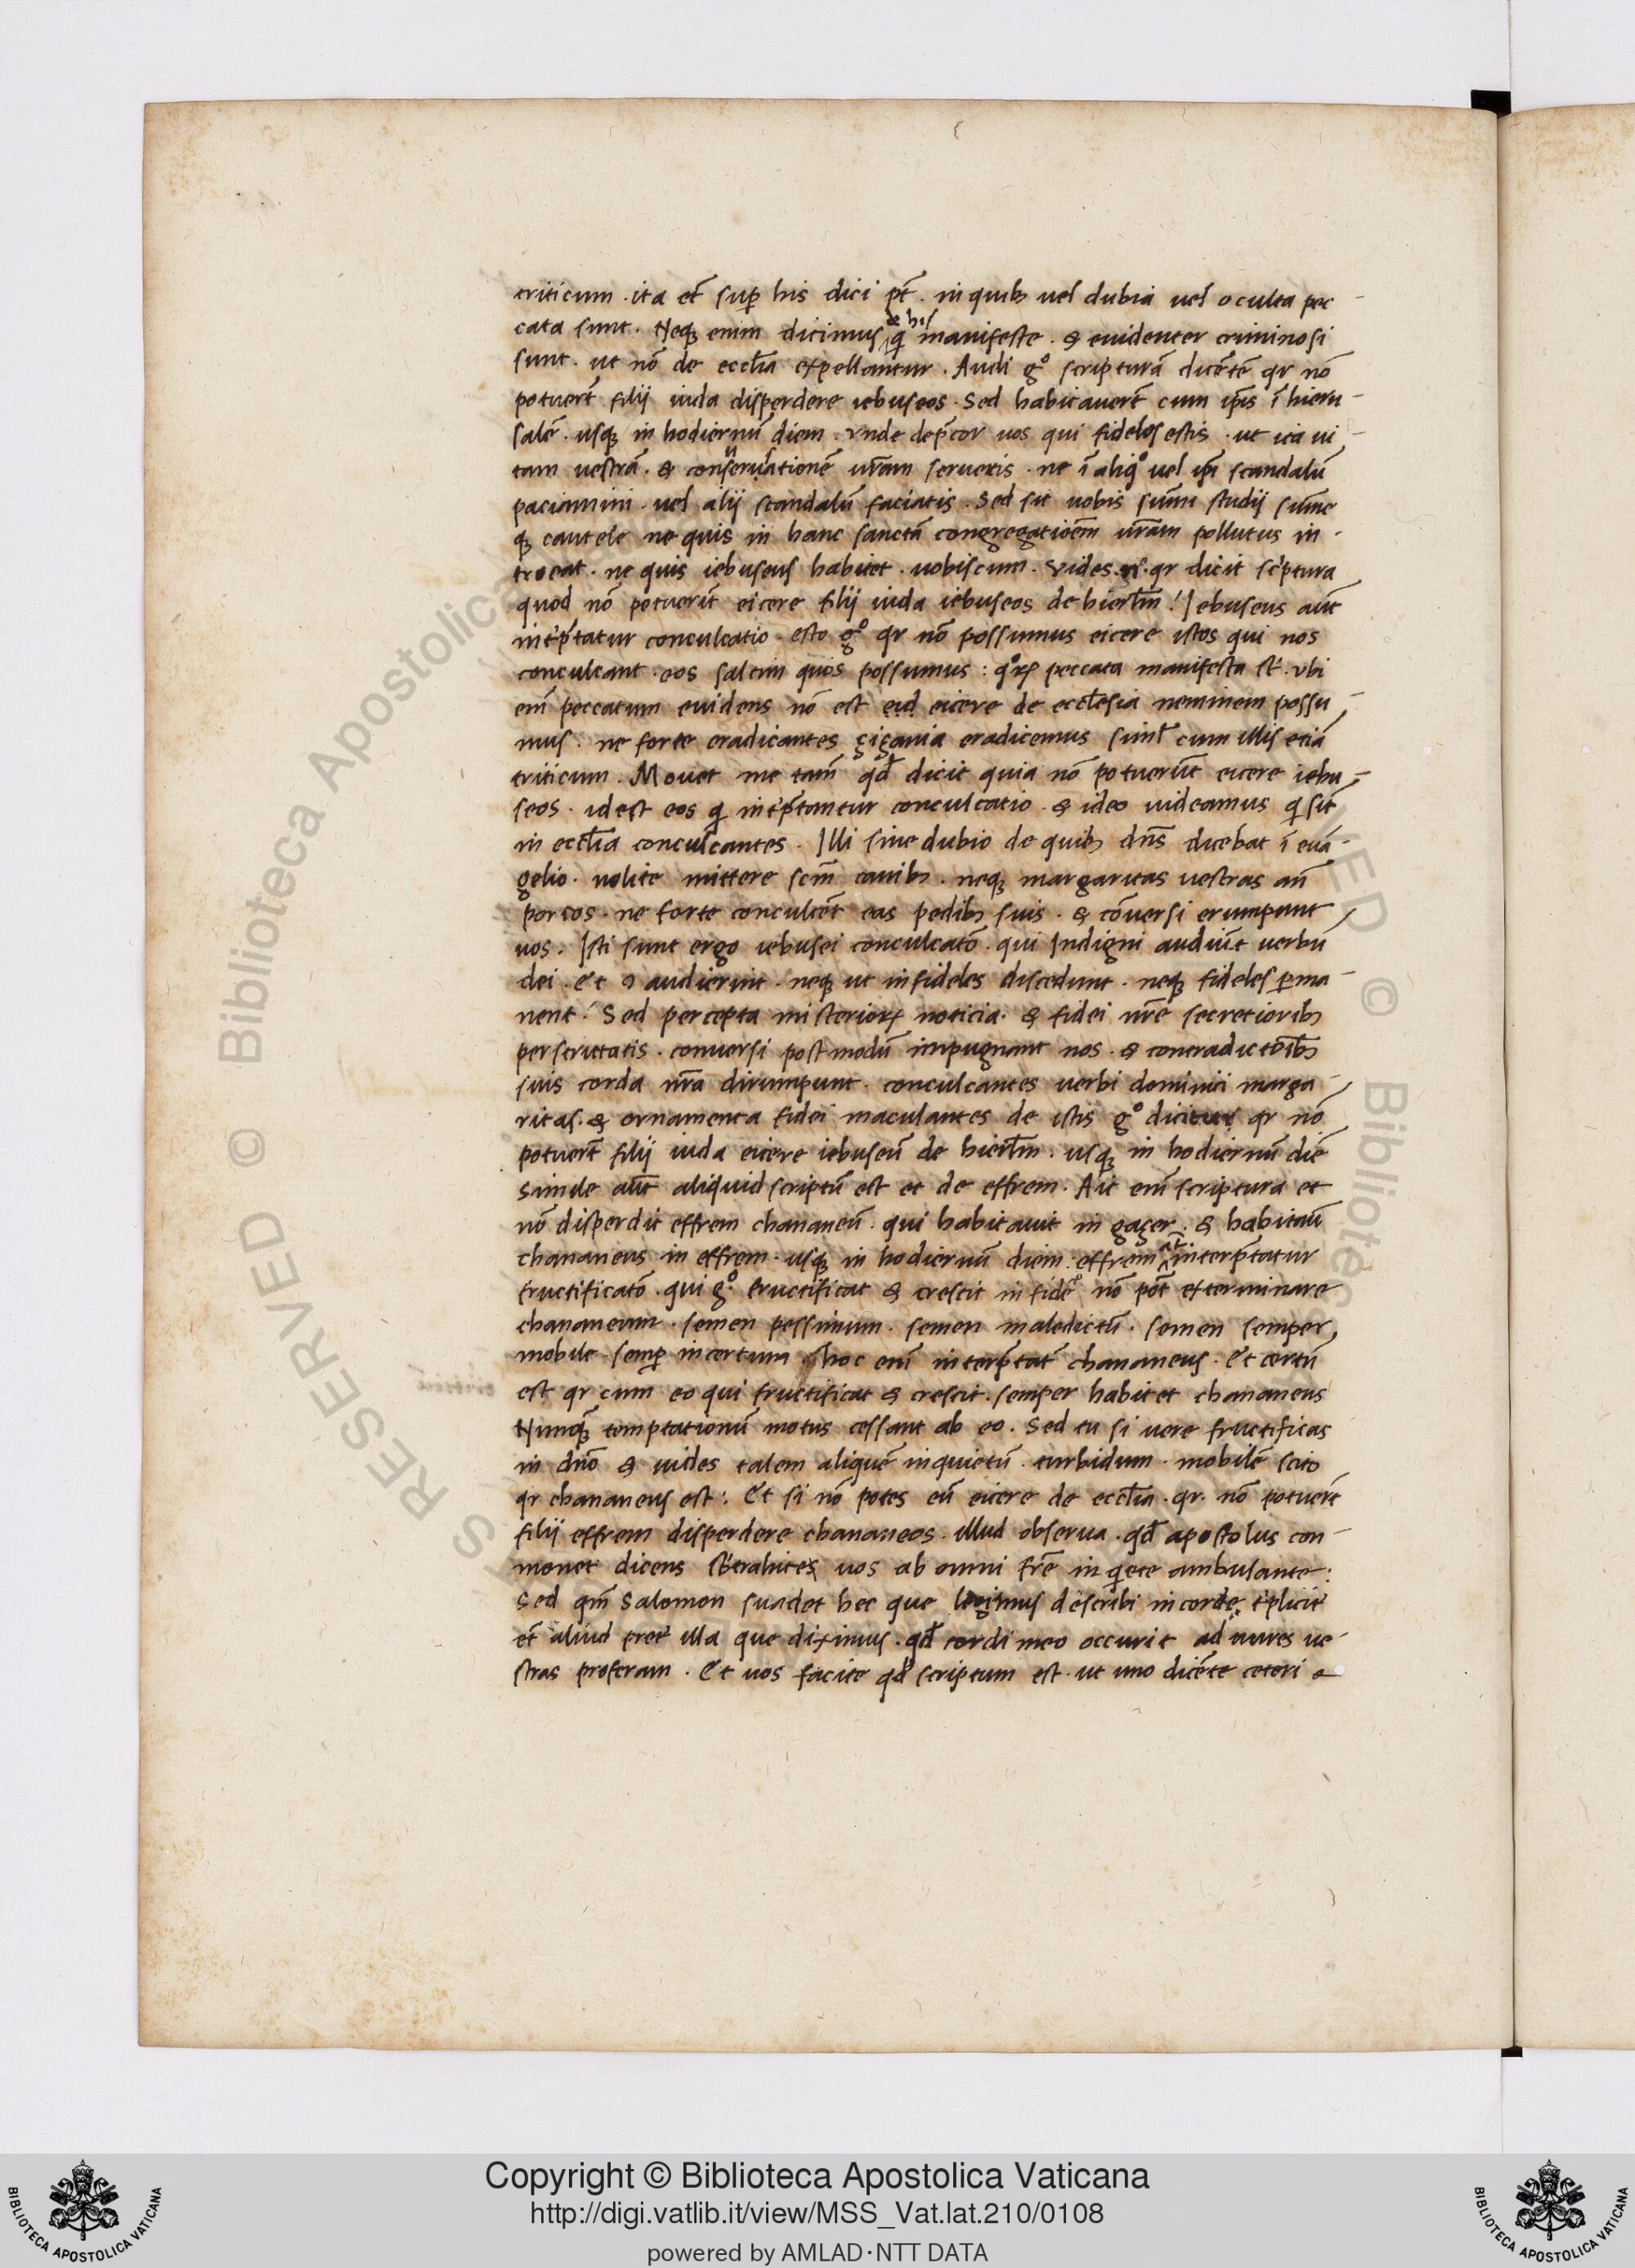 triticum · ita et̄ suꝑ his dici pt̄ · in quibꝫ uel dubia uel oculta pec-
cata sunt · Neqꝫ enim dicimus de his q̄ manifeste · & euidenter criminosi
sunt · ut nō de eccl̄ia expellantur · Audi gͦ scripturā dicētē qr nō
potuer̄t filij iuda disperdere iebuseos · Sed habitauer̄t cum ip̄is ī hieru-
salē · usqꝫ in hodiernū diem · vnde dep̄cor uos qui fideles estis · ut ita ui-
tam uestrā · & conseruationē ur̄am seruetis · ne ī aliqͦ uel ip̄i scandalū
paciamini · uel alij scandalū faciatis · Sed sit uobis sūmi studij sūme
qꝫ cautele ne quis in hanc sanctā congregatiōem ur̄am pollutus in-
troeat · ne quis iebuseus habitet · uobiscum · Vides · qr dicit sc'ptura
quod nō potuerūt eicere filij iuda iebuseos de hierl̄m! Iebuseus aūt
int'p̄tatur conculcatio · esto gͦ qr nō possumus eicere istos qui nos
conculcant · eos saltim quos possumus : qͦꝝ peccata manifesta st̄ · vbi
em̄ peccatum euidens nō est eicere de eccl̄esia neminem possu-
mus · ne forte eradicantes zizania eradicemus siml̄ cum illis etiā
triticum · Mouet me tam̄ qd̄ dicit quia nō potuerūt eicere iebu-
seos · idest eos q̄ int'p̄tantur conculcatio · & ideo uideamus q̄ sit̄
in eccl̄ia conculcantes · Illi sine dubio de quibꝫ dn̄s dicebat ī euā-
gelio · nolite mittere scm̄ canibꝫ · neqꝫ margaritas uestras an̄
porcos · ne forte conculcēt eas pedibꝫ suis · & cōuersi erumpunt
uos · Isti sunt ergo iebusei conculcatō · qui Indigni audiūt uerbū
dei · Et ꝯ audierint · neqꝫ ut infideles discedunt · neqꝫ fideles ꝑma-
nent! Sed percepta misterioꝝ noticia · & fidei nr̄e secretioribꝫ
perscrutatis · conuersi postmodū impugnant nos · & contradictōibꝫ
suis corda nr̄a dirumpunt · conculcantes uerbi dominici marga-
ritas · & ornamenta fidei maculantes de istis gͦ dicitur qr nō
potuer̄t filij iuda eicere iebuseū de hierl̄m · usqꝫ in hodiernū diē
Simile aūt aliquid scriptū est et de effrem · Ait em̄ scriptura et
nō disperdit effrem chananeū · qui habitauit in gazer · & habitau̅
chananeus in effrem · usqꝫ in hodiernū diem · effrem at̄ interp̄tatur
fructificatō · qui gͦ · fructificat & crescit in fide nō pōt exterminare
chananeum · semen pessimum · semen maledictū · semen semper
mobile · semꝑ incertum hoc em̄ interp̄tat̄ chananeus · Et certū
est qr cum eo qui fructificat & crescit · semper habitet chananeus
Nunqꝫ temptationū motus cessant ab eo · Sed tu si uere fructificas
in dn̄o & uides talem aliquē inquietū · turbidum · mobilē scito
qr chananeus est : Et si nō potes eū eicere de eccl̄ia · qr · nō potuer̄t
filij effrem disperdere chananeos · illud obserua · qd̄ apostolus con-
monet dicens sbtrahites uos ab omni fr̄e inq̄ete ambulante :
Sed qm̄ Salomon suadet hec que legimus describi in corde t'plicit̄
et̄ aliud illa que diximus · qd̄ cordi meo occurit ad aures ue-
stras proferam · Et uos facite qd̄ scriptum est · ut uno dicēte ceteri e-
Copyright © Biblioteca Apostolica Vaticana
http://digi.vatlib.it/view/MSS_Vat.lat.210/0108
powered by AMLAD·NTT DATA